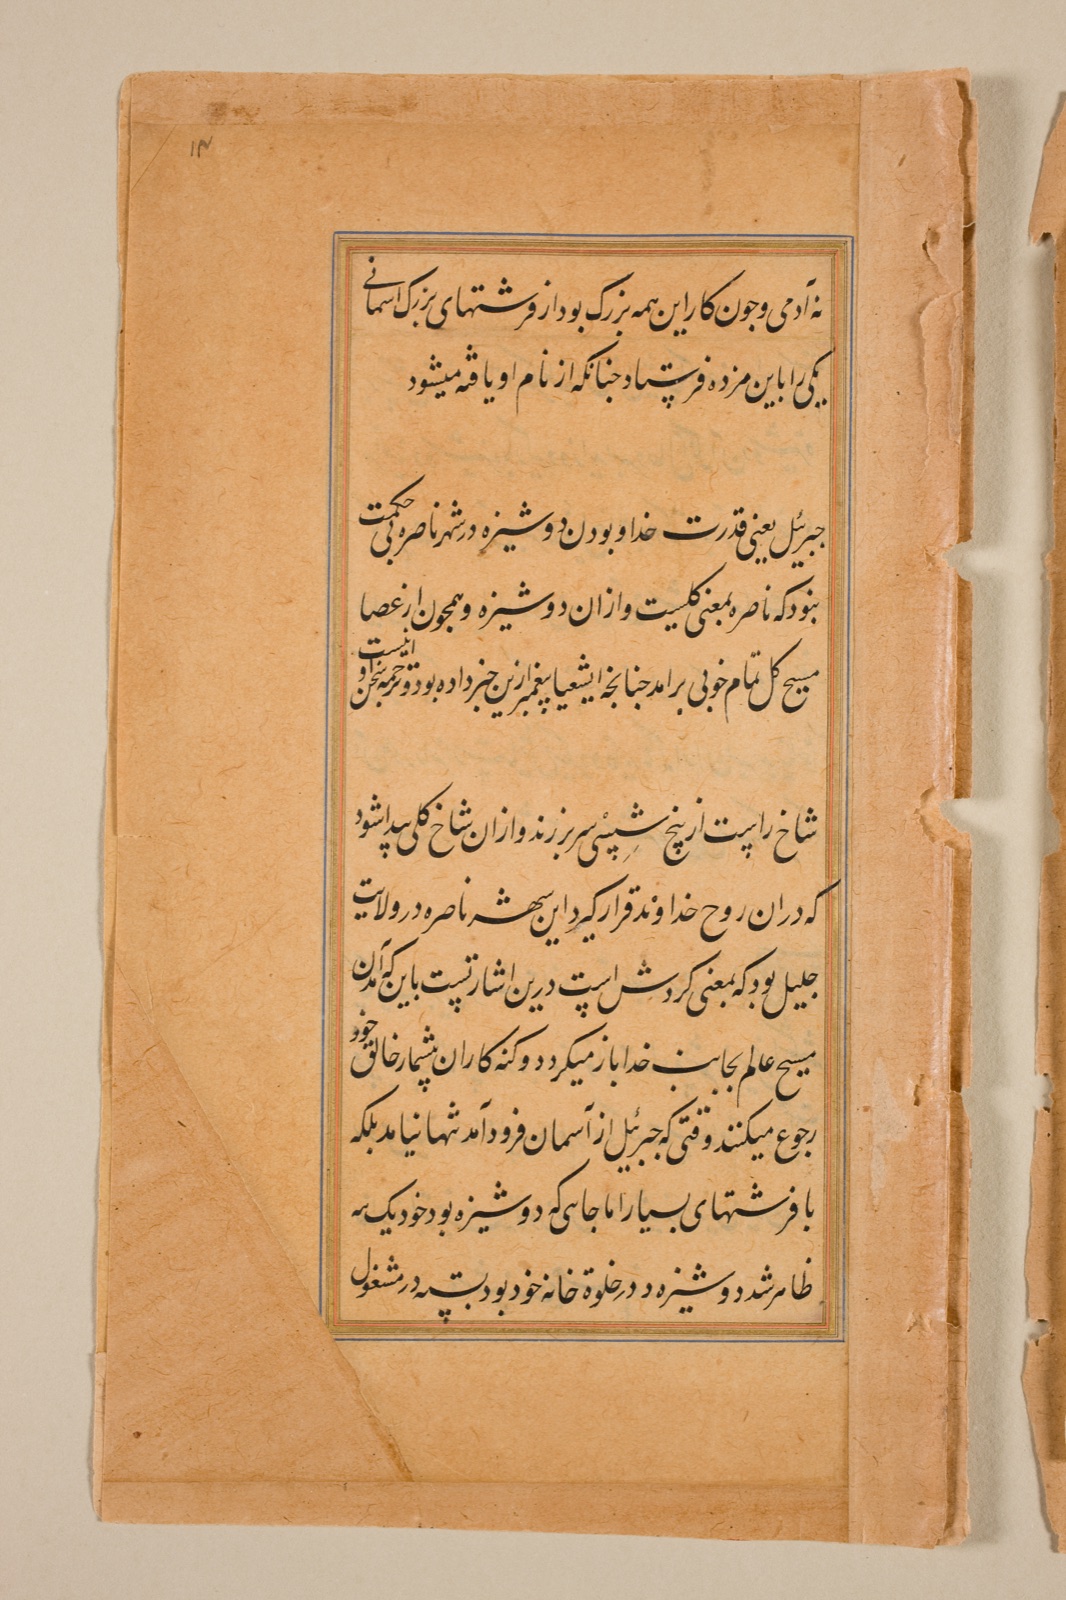 ۱۳
نه آدمی وجون کار این همه بزرگ بود از فرشتهای بزرک اسمانی
یکی را باین مزده فرستاد جنانکه از نام او یافته میشود
جبرئیل یعنی قدرت خدا و بودن دوشیزه در شهر ناصره بی حکمت
نبود که ناصره بمعنی کلست و ازان دوشیزه و همجون از عصا
مسیح کل تمام خوبی برامد جنانجه ایشعیا پیغمبر ازین خبر داده بود و ترجمه سخن او اینست
شاخ راست از بیخ یشیئی سر بر زند و ازان شاخ کلی پیدا شود
که دران روح خداوند قرار کیرد این شهر ناصره در ولایت
جلیل بود که بمعنی کردش است درین اشارتست باین که آمدن
مسیح عالم بجانب خدا باز میکردد و کنه کاران بیشمار خالق خود
رجوع میکنند وقتی که جبرئیل از آسمان فرود آمد تنها نیامد بلکه
با فرشتهای بسیار اما جاهی که دوشیزه بود خود یک
ظاهر شد دوشیزه در خلوة خانه خود بود بسته در مشغول